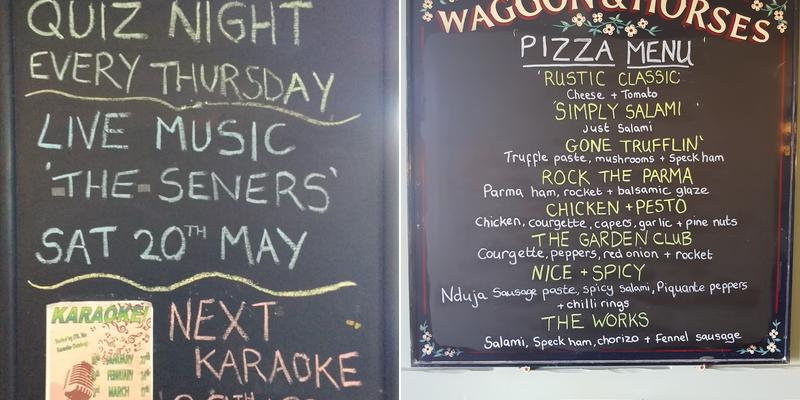 QUIZ NIGHT
EVERY THURSDAY
LIVE MUSIC
'THE SENERS'
SAT 20TH MAY
KARAOKE!
JANUARY
FEBRUARY
MARCH
NEXT
KARAOKE
WAGGON & HORSES
'PIZZA MENU'
'RUSTIC CLASSIC'
Cheese + Tomato
'SIMPLY SALAMI'
Just Salami
GONE TRUFFLIN'
Truffle paste, mushrooms + Speck ham
ROCK THE PARMA
Parma ham, rocket + balsamic glaze
CHICKEN + PESTO
Chicken, courgette, capers, garlic + pine nuts
THE GARDEN CLUB
Courgette, peppers, red onion + rocket
NICE + SPICY
Nduja Sausage paste, spicy salami, Piquante peppers
+ chilli rings
THE WORKS
Salami, Speck ham, chorizo + Fennel sausage